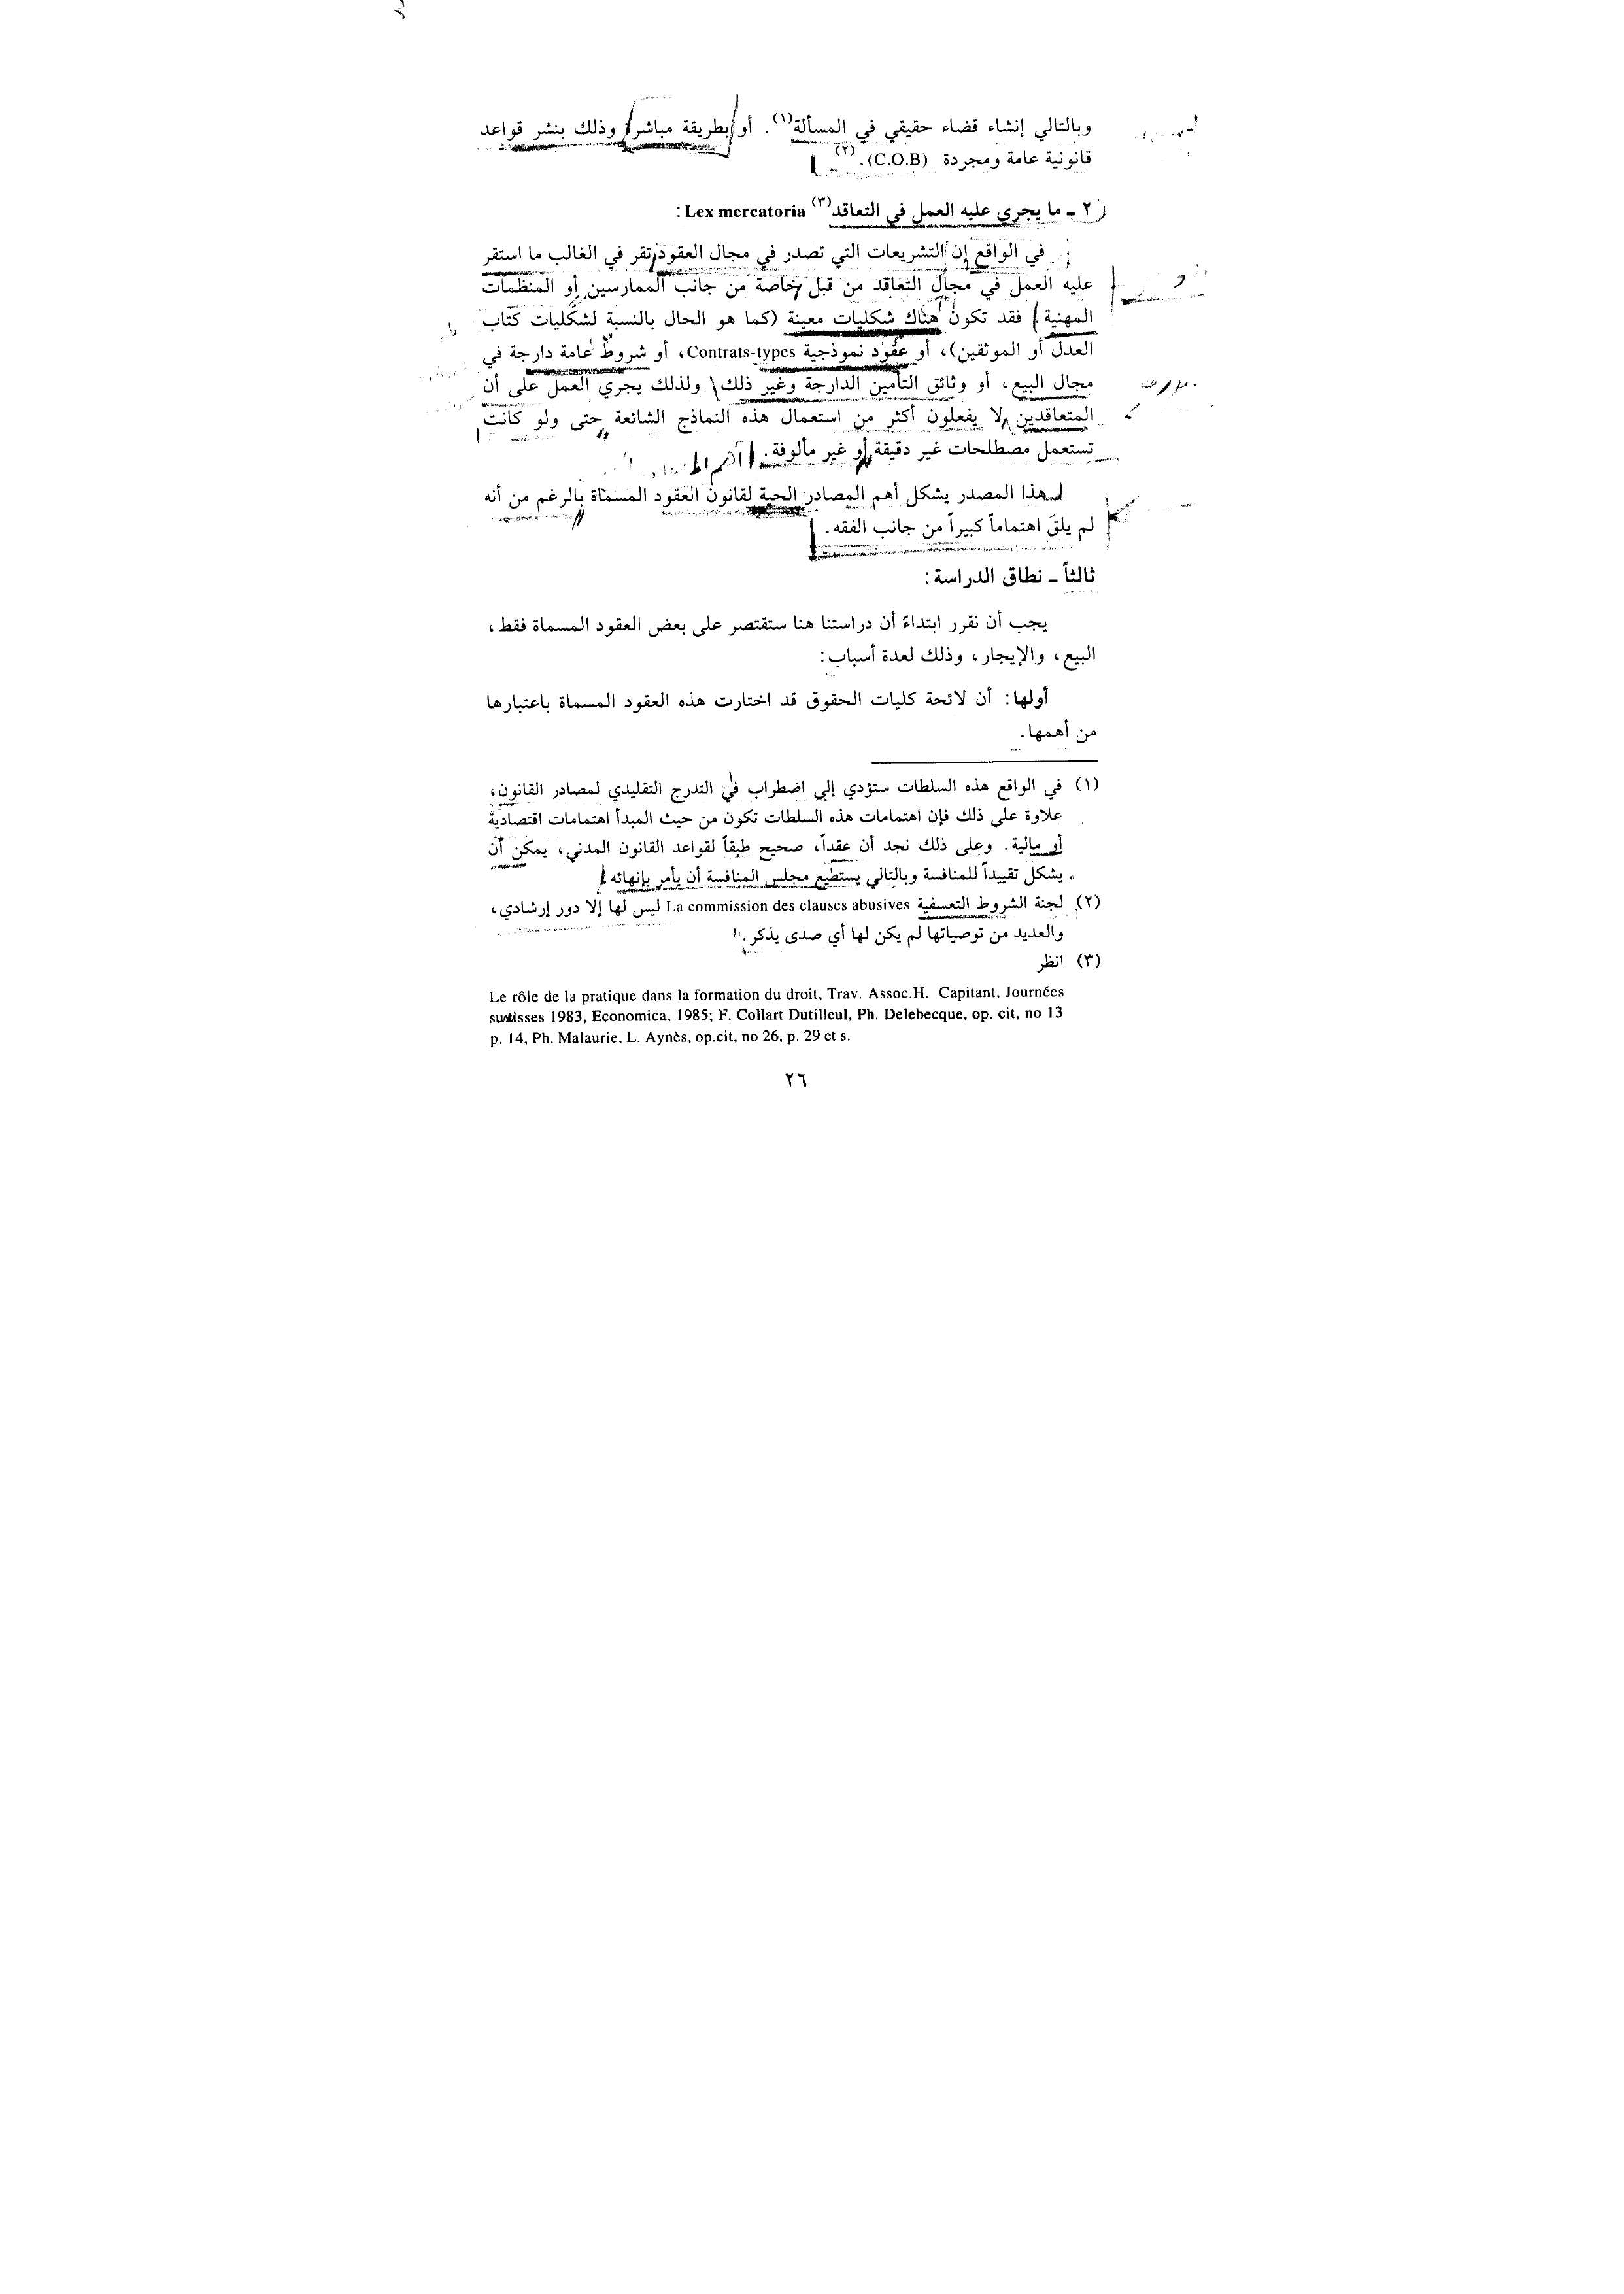 وبالتالي إنشاء قضاء حقيقي في المسألة(١). أو بطريقة مباشرة وذلك بنشر قواعد
قانونية عامة ومجردة (C.O.B).(٢)
٢ ـ ما يجري عليه العمل في التعاقد(٣) Lex mercatoria:
في الواقع إن التشريعات التي تصدر في مجال العقود تقر في الغالب ما استقر
عليه العمل في مجال التعاقد من قبل خاصة من جانب الممارسين أو المنظمات
المهنية فقد تكون هناك شكليات معينة (كما هو الحال بالنسبة لشكليات كتاب
العدل أو الموثقين)، أو عقود نموذجية Contrats-types، أو شروط عامة دارجة في
مجال البيع، أو وثائق التأمين الدارجة وغير ذلك ولذلك يجري العمل على أن
المتعاقدين لا يفعلون أكثر من استعمال هذه النماذج الشائعة حتى ولو كانت
تستعمل مصطلحات غير دقيقة أو غير مألوفة.
هذا المصدر يشكل أهم المصادر الحية لقانون العقود المسماة بالرغم من أنه
لم يلقَ اهتماماً كبيراً من جانب الفقه.
ثالثاً ـ نطاق الدراسة:
يجب أن نقرر ابتداءً أن دراستنا هنا ستقتصر على بعض العقود المسماة فقط،
البيع، والإيجار، وذلك لعدة أسباب:
أولها: أن لائحة كليات الحقوق قد اختارت هذه العقود المسماة باعتبارها
من أهمها.
(١) في الواقع هذه السلطات ستؤدي إلى اضطراب في التدرج التقليدي لمصادر القانون،
علاوة على ذلك فإن اهتمامات هذه السلطات تكون من حيث المبدأ اهتمامات اقتصادية
أو مالية. وعلى ذلك نجد أن عقداً، صحيح طبقاً لقواعد القانون المدني، يمكن أن
يشكل تقييداً للمنافسة وبالتالي يستطيع مجلس المنافسة أن يأمر بإنهائه
(٢) لجنة الشروط التعسفية La commission des clauses abusives ليس لها إلا دور إرشادي،
والعديد من توصياتها لم يكن لها أي صدى يذكر.
(٣) انظر
Le rôle de la pratique dans la formation du droit, Trav. Assoc.H. Capitant, Journées
suisses 1983, Economica, 1985; F. Collart Dutilleul, Ph. Delebecque, op. cit, no 13
p. 14, Ph. Malaurie, L. Aynès, op.cit, no 26, p. 29 et s.
٢٦